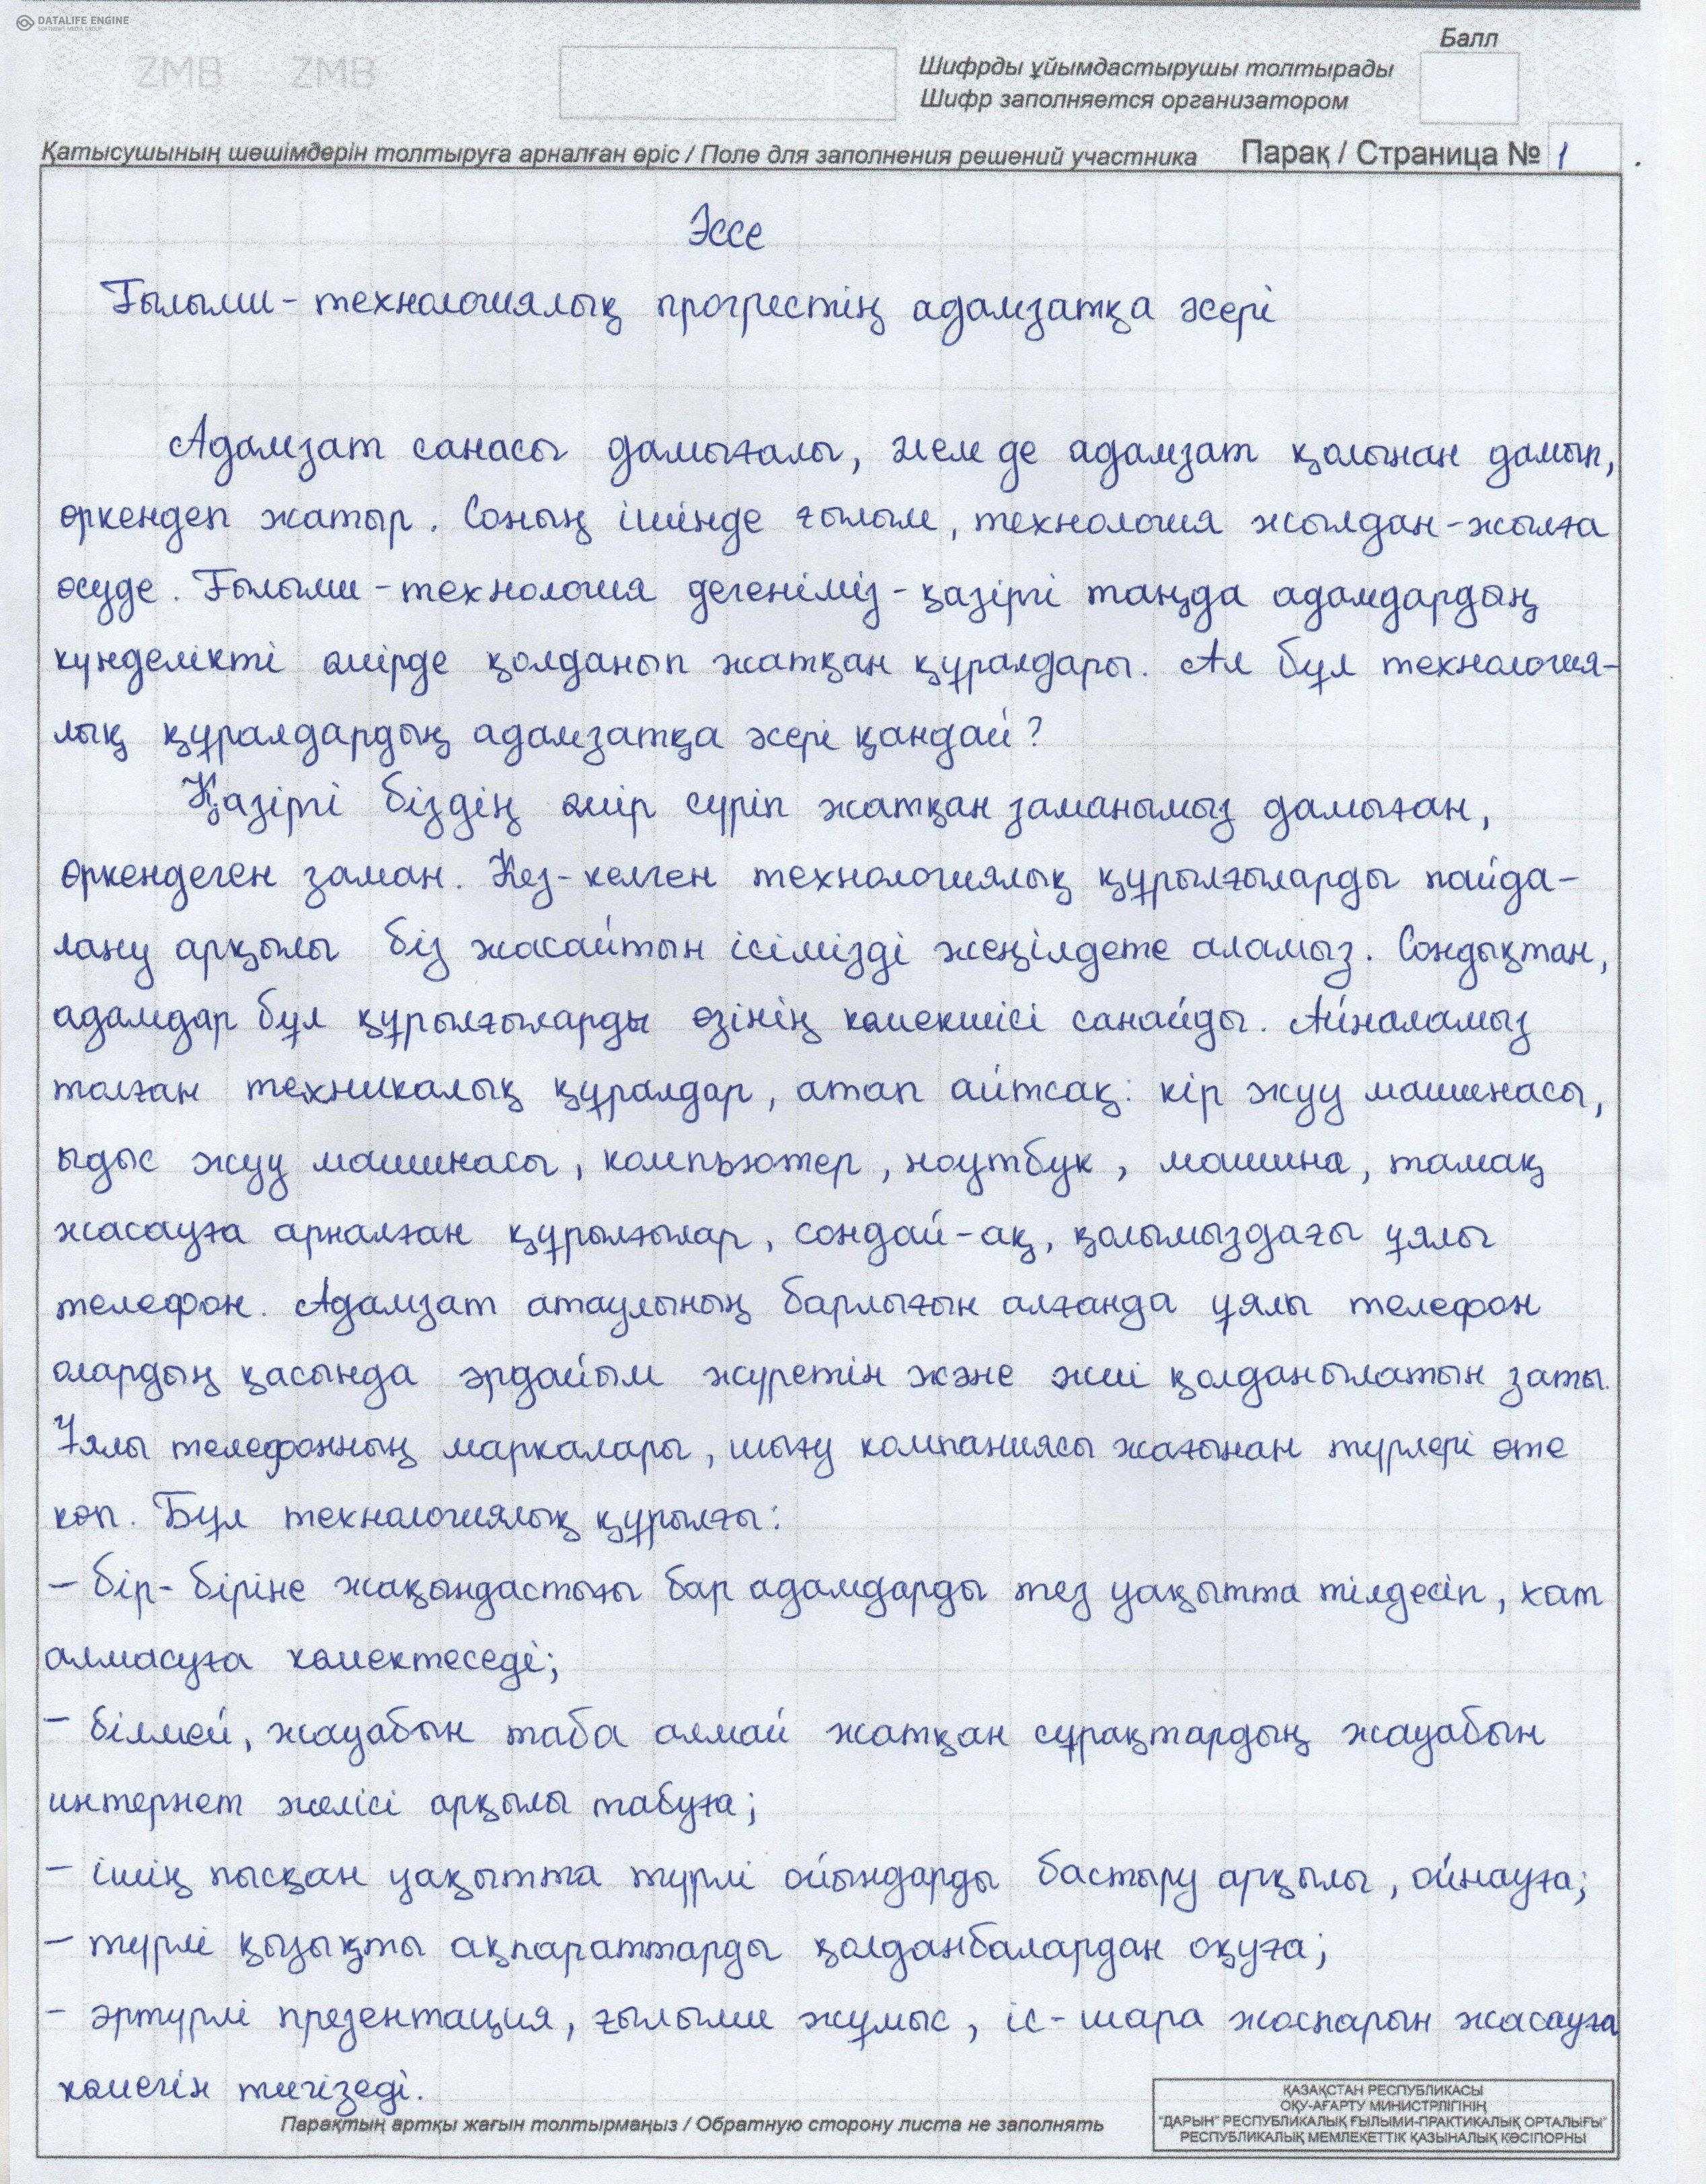 DATALIFE ENGINE
SOFTNEWS MEDIA GROUP
ZMB ZMB
Балл
Шифрды ұйымдастырушы толтырады
Шифр заполняется организатором
Қатысушының шешімдерін толтыруға арналған өріс / Поле для заполнения решений участника Парақ / Страница № 1
Эссе
Ғылыми-технологиялық прогрестің адамзатқа әсері
Адамзат санасы дамығалы, әлем де адамзат қолынан дамып,
өркендеп жатыр. Соның ішінде ғылым, технология жылдан-жылға
өсуде. Ғылыми-технология дегеніміз-қазіргі таңда адамдардың
күнделікті өмірде қолданып жатқан құралдары. Ал бұл технология-
лық құралдардың адамзатқа әсері қандай?
Қазіргі біздің өмір сүріп жатқан заманымыз дамыған,
өркендеген заман. Кез-келген технологиялық құрылғыларды пайда-
лану арқылы біз жасайтын ісімізді жеңілдете аламыз. Сондықтан,
адамдар бұл құрылғыларды өзінің көмекшісі санайды. Айналамыз
толған техникалық құралдар, атап айтсақ: кір жуу машинасы,
ыдыс жуу машинасы, компьютер, ноутбук, машина, тамақ
жасауға арналған құрылғылар, сондай-ақ, қолымыздағы ұялы
телефон. Адамзат атаулының барлығын алғанда ұялы телефон
олардың қасында әрдайым жүретін және жиі қолданылатын заты.
Ұялы телефонның маркалары, шығу компаниясы жағынан түрлері өте
көп. Бұл технологиялық құрылғы:
- бір-біріне жақындастығы бар адамдарды тез уақытта тілдесіп, хат
алмасуға көмектеседі;
- білмей, жауабын таба алмай жатқан сұрақтардың жауабын
интернет желісі арқылы табуға;
- ішің пысқан уақытта түрлі ойындарды бастыру арқылы, ойнауға;
- түрлі қызықты ақпараттарды қолданбалардан оқуға;
- әртүрлі презентация, ғылыми жұмыс, іс-шара жоспарын жасауға
көмегін тигізеді.
Парақтың артқы жағын толтырмаңыз / Обратную сторону листа не заполнять
ҚАЗАҚСТАН РЕСПУБЛИКАСЫ
ОҚУ-АҒАРТУ МИНИСТРЛІГІНІҢ
"ДАРЫН" РЕСПУБЛИКАЛЫҚ ҒЫЛЫМИ-ПРАКТИКАЛЫҚ ОРТАЛЫҒЫ"
РЕСПУБЛИКАЛЫҚ МЕМЛЕКЕТТІК ҚАЗЫНАЛЫҚ КӘСІПОРНЫ